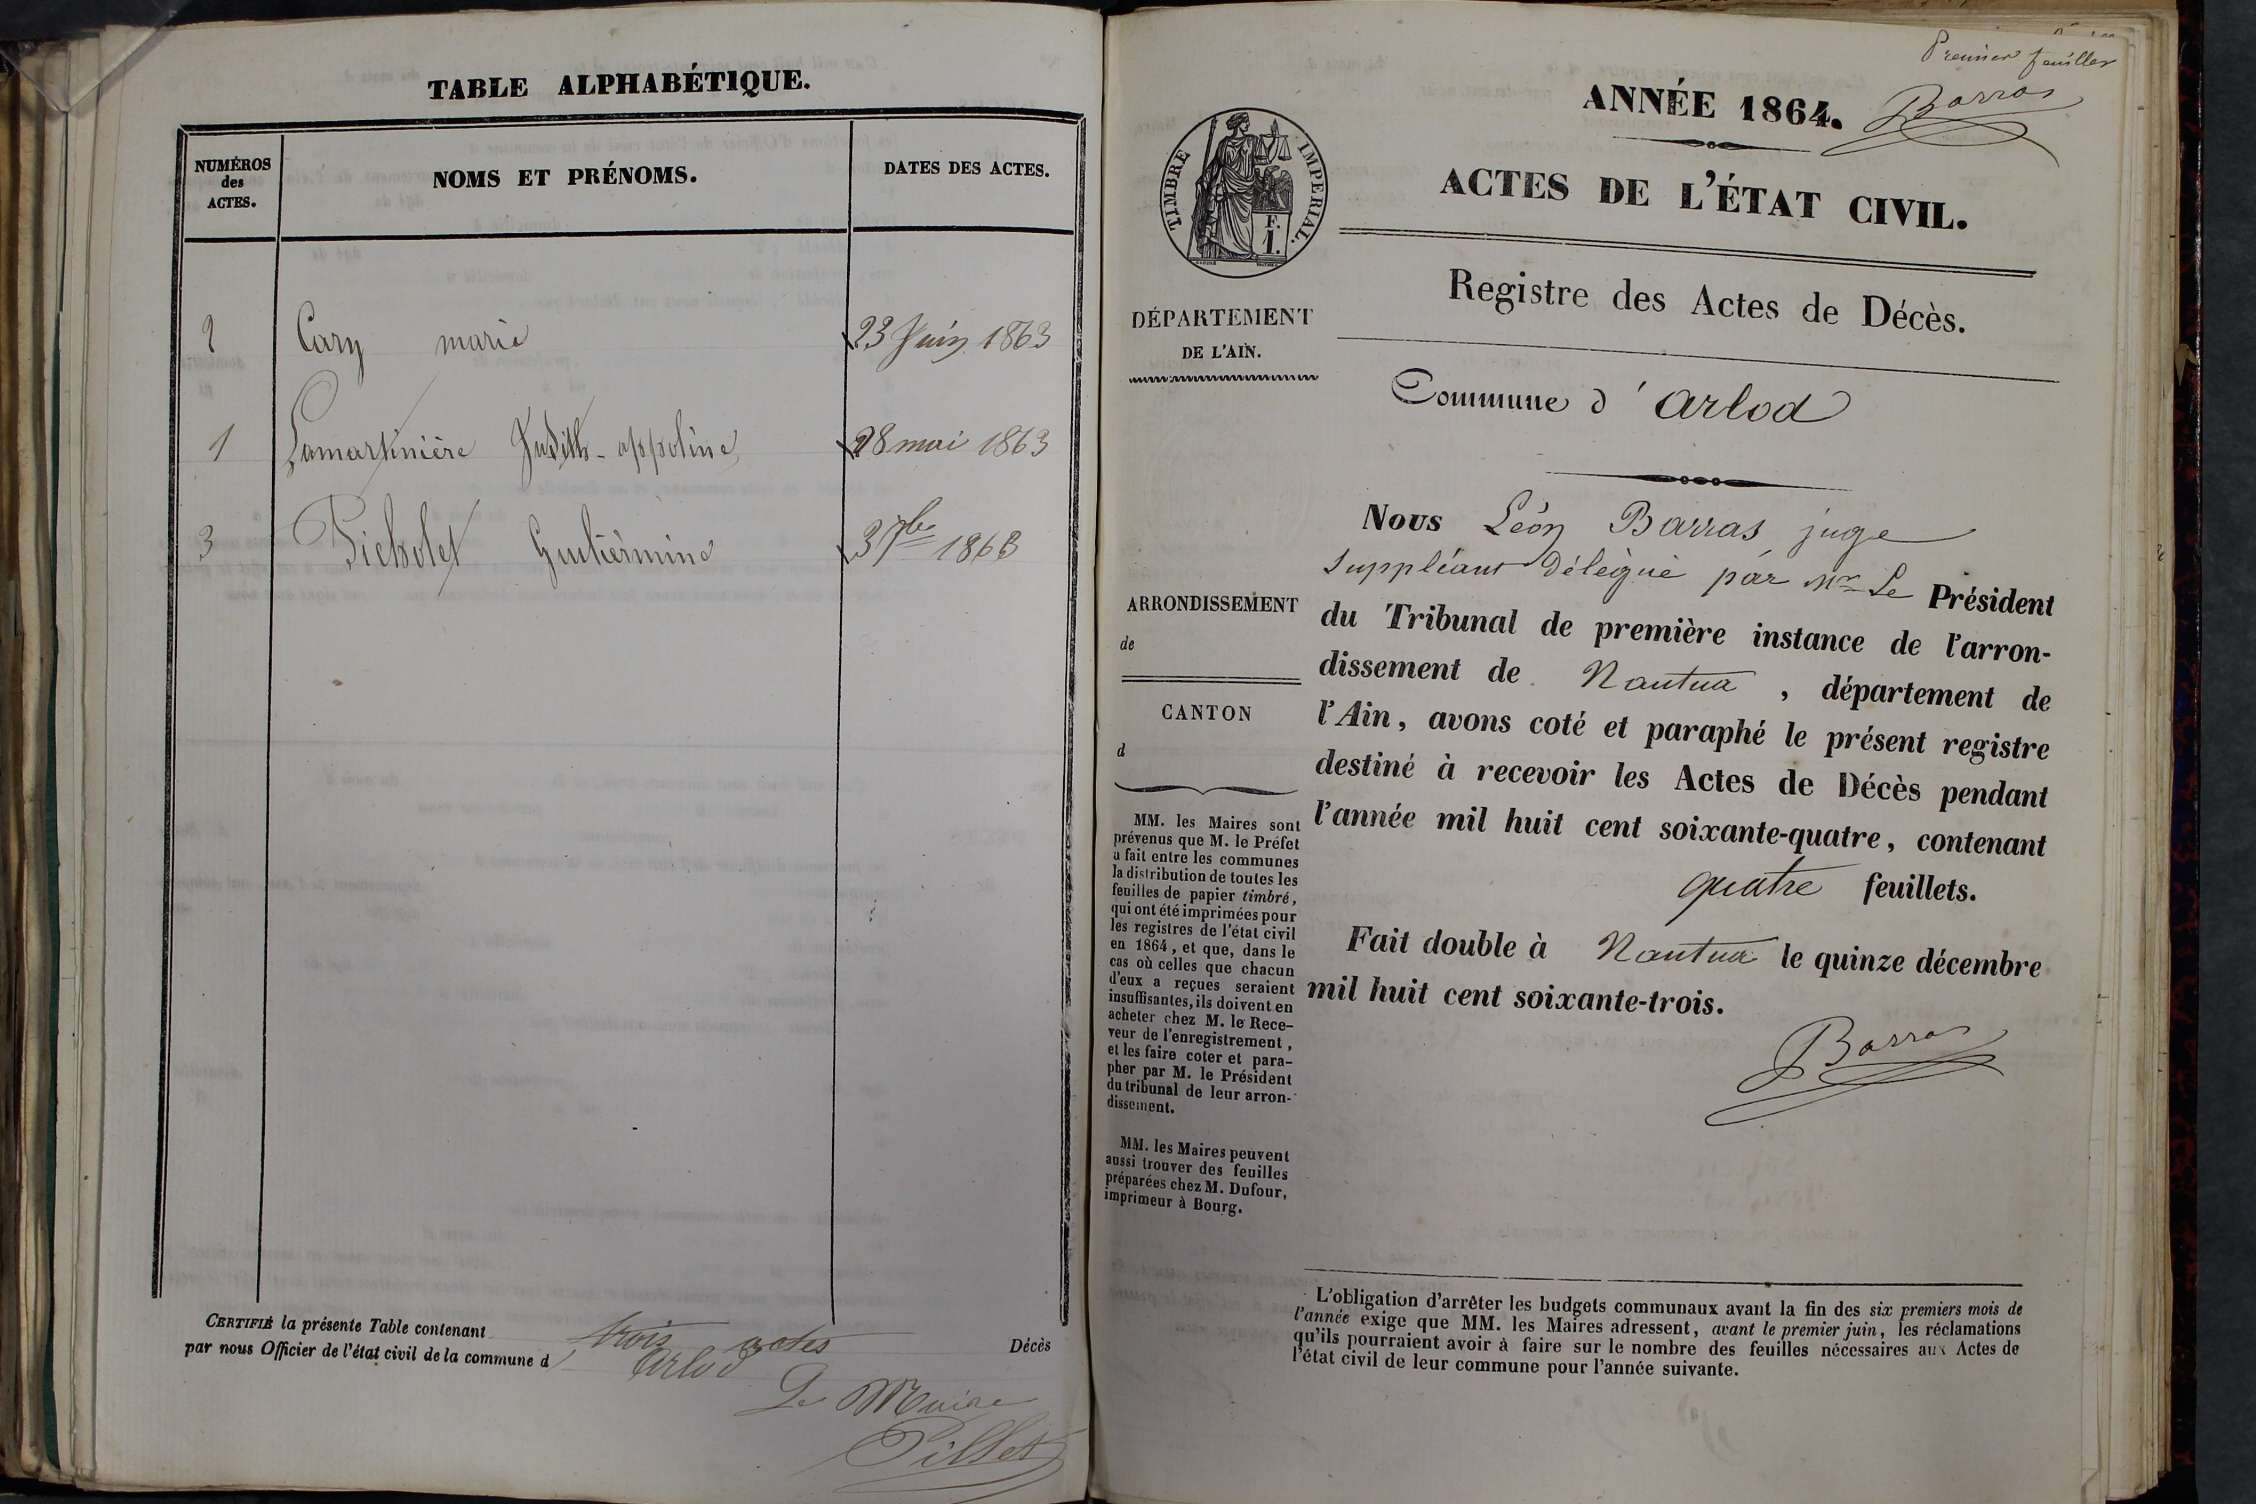 TABLE ALPHABÉTIQUE.
NUMÉROS
des
ACTES.
NOMS ET PRÉNOMS.
DATES DES ACTES.
2 Cary marie 23 Juin 1863
1 Lamartinière Judith - appoline 28 mai 1863
3 Picholet Guilièrmine 3 7bre 1863
CERTIFIÉ la présente Table contenant trois actes Décès
par nous Officier de l'état civil de la commune d'Arlod
Le Maire
Pillet
Premier feuillet
Barras
ANNÉE 1864.
ACTES DE L'ÉTAT CIVIL.
TIMBRE IMPERIAL.
F.
1.
Registre des Actes de Décès.
DÉPARTEMENT
DE L'AIN.
Commune d'Arlod
ARRONDISSEMENT
de
CANTON
d
MM. les Maires sont
prévenus que M. le Préfet
a fait entre les communes
la distribution de toutes les
feuilles de papier timbré,
qui ont été imprimées pour
les registres de l'état civil
en 1864, et que, dans le
cas où celles que chacun
d'eux a reçues seraient
insuffisantes, ils doivent en
acheter chez M. le Rece-
veur de l'enregistrement,
et les faire coter et para-
pher par M. le Président
du tribunal de leur arron-
dissement.
MM. les Maires peuvent
aussi trouver des feuilles
préparées chez M. Dufour,
imprimeur à Bourg.
Nous Léon Barras juge
suppléant délégué par Mr Le Président
du Tribunal de première instance de l'arron-
dissement de Nantua, département de
l'Ain, avons coté et paraphé le présent registre
destiné à recevoir les Actes de Décès pendant
l'année mil huit cent soixante-quatre, contenant
quatre feuillets.
Fait double à Nantua le quinze décembre
mil huit cent soixante-trois.
Barras
L'obligation d'arrêter les budgets communaux avant la fin des six premiers mois de
l'année exige que MM. les Maires adressent, avant le premier juin, les réclamations
qu'ils pourraient avoir à faire sur le nombre des feuilles nécessaires aux Actes de
l'état civil de leur commune pour l'année suivante.